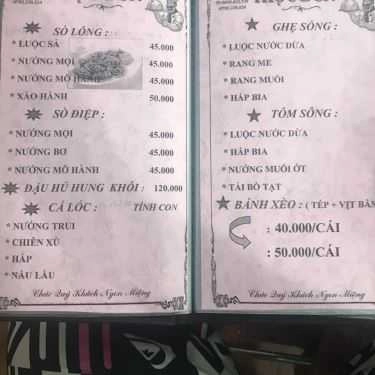 SÒ LÔNG :
* LUỘC SẢ 45.000
* NƯỚNG MỌI 45.000
* NƯỚNG MỠ HÀNH 45.000
* XÀO HÀNH 50.000
SÒ ĐIỆP :
* NƯỚNG MỌI 45.000
* NƯỚNG BƠ 45.000
* NƯỚNG MỠ HÀNH 45.000
ĐẬU HŨ HUNG KHÓI : 120.000
CÁ LÓC : TÍNH CON
* NƯỚNG TRUI
* CHIÊN XÙ
* HẤP
* NẤU LẨU
Chúc Quý Khách Ngon Miệng
GHẸ SÔNG :
* LUỘC NƯỚC DỪA
* RANG ME
* RANG MUỐI
* HẤP BIA
TÔM SÔNG :
* LUỘC NƯỚC DỪA
* HẤP BIA
* NƯỚNG MUỐI ỚT
* TÁI BÒ TẠT
BÁNH XÈO : ( TÉP + VỊT BẰM
: 40.000/CÁI
: 50.000/CÁI
Chúc Quý Khách Ngon Miệng